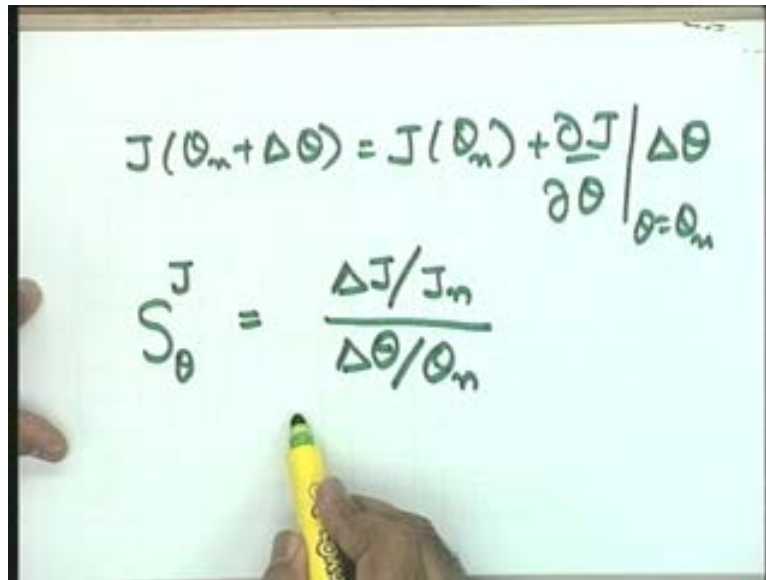 J(θₙ+Δθ) = J(θₙ) + ∂J/∂θ |θ=θₙ Δθ
S_θ^J = (ΔJ/Jₙ)/(Δθ/θₙ)